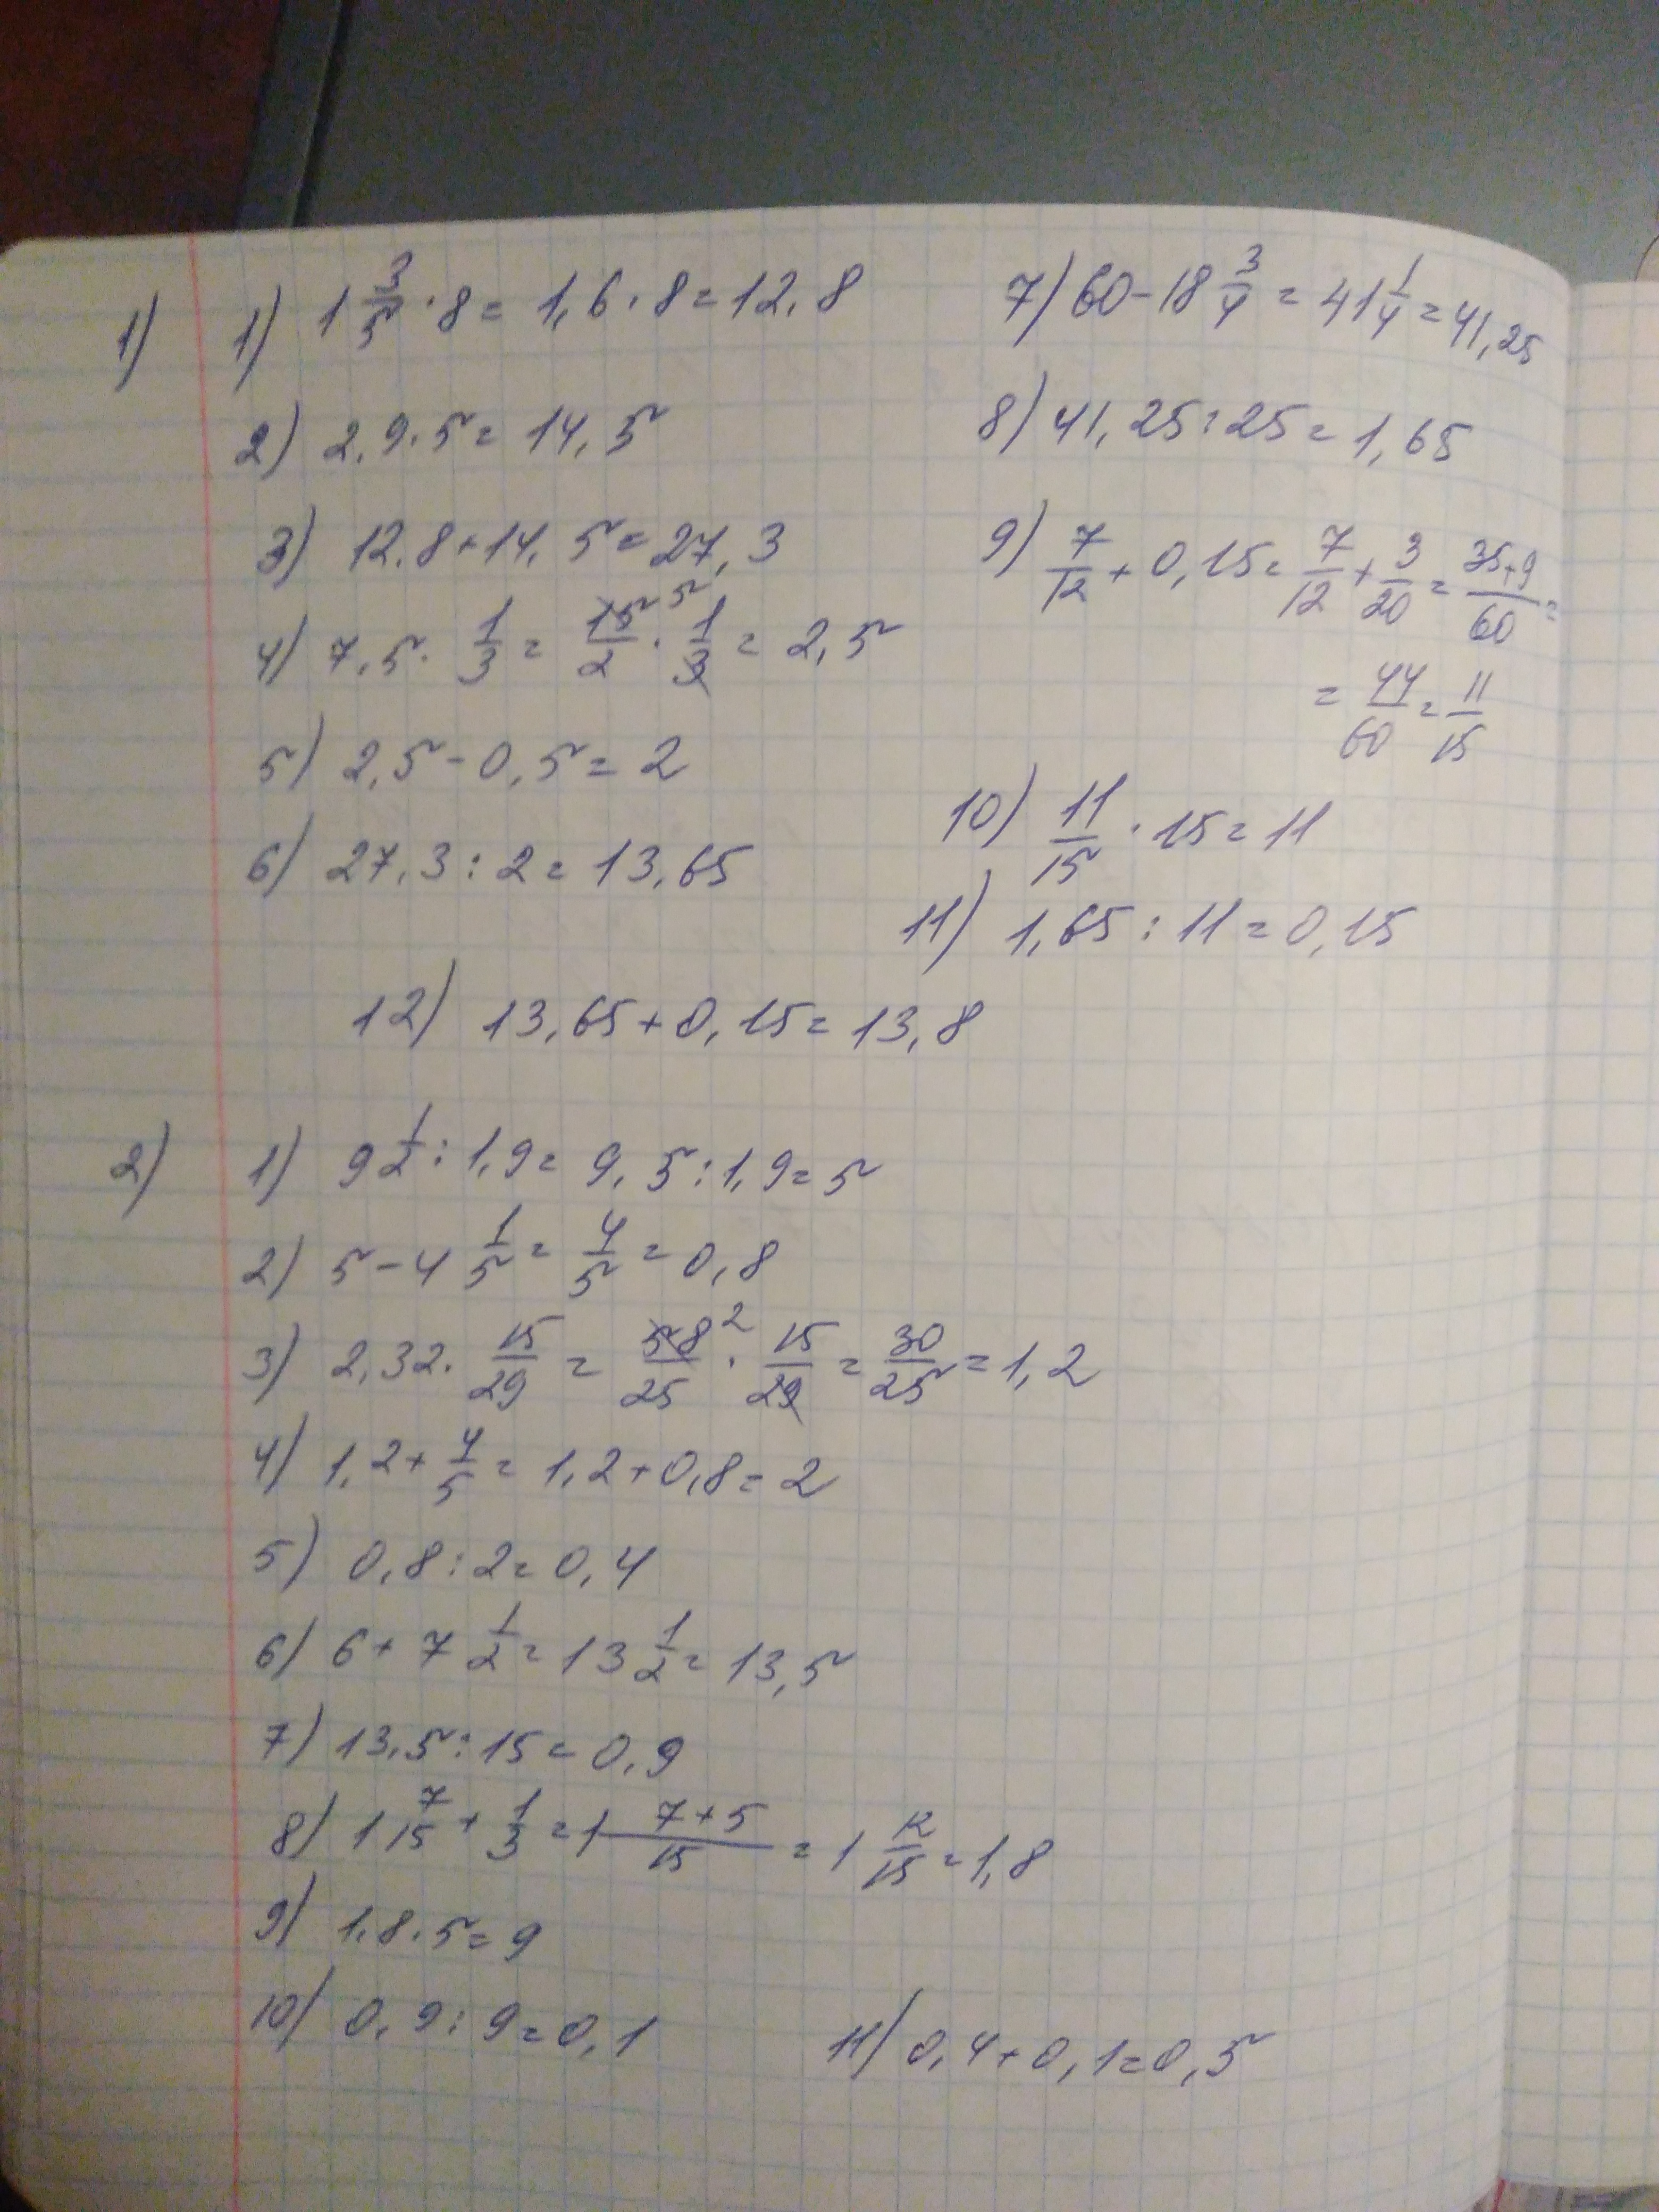 1) 1) 1 3/5 · 8 = 1,6 · 8 = 12,8
2) 2,9 · 5 = 14,5
3) 12,8 + 14,5 = 27,3
4) 7,5 · 1/3 = 15/2 · 1/3 = 2,5
5) 2,5 - 0,5 = 2
6) 27,3 : 2 = 13,65
7) 60 - 18 3/4 = 41 1/4 = 41,25
8) 41,25 : 25 = 1,65
9) 7/12 + 0,15 = 7/12 + 3/20 = 35+9/60 =
= 44/60 = 11/15
10) 11/15 · 15 = 11
11) 1,65 : 11 = 0,15
12) 13,65 + 0,15 = 13,8
2) 1) 9 1/2 : 1,9 = 9,5 : 1,9 = 5
2) 5 - 4 1/5 = 4/5 = 0,8
3) 2,32 · 15/29 = 58 2/25 · 15/29 = 30/25 = 1,2
4) 1,2 + 4/5 = 1,2 + 0,8 = 2
5) 0,8 : 2 = 0,4
6) 6 + 7 1/2 = 13 1/2 = 13,5
7) 13,5 : 15 = 0,9
8) 1 7/15 + 1/3 = 1 7+5/15 = 1 12/15 = 1,8
9) 1,8 · 5 = 9
10) 0,9 : 9 = 0,1
11) 0,4 + 0,1 = 0,5